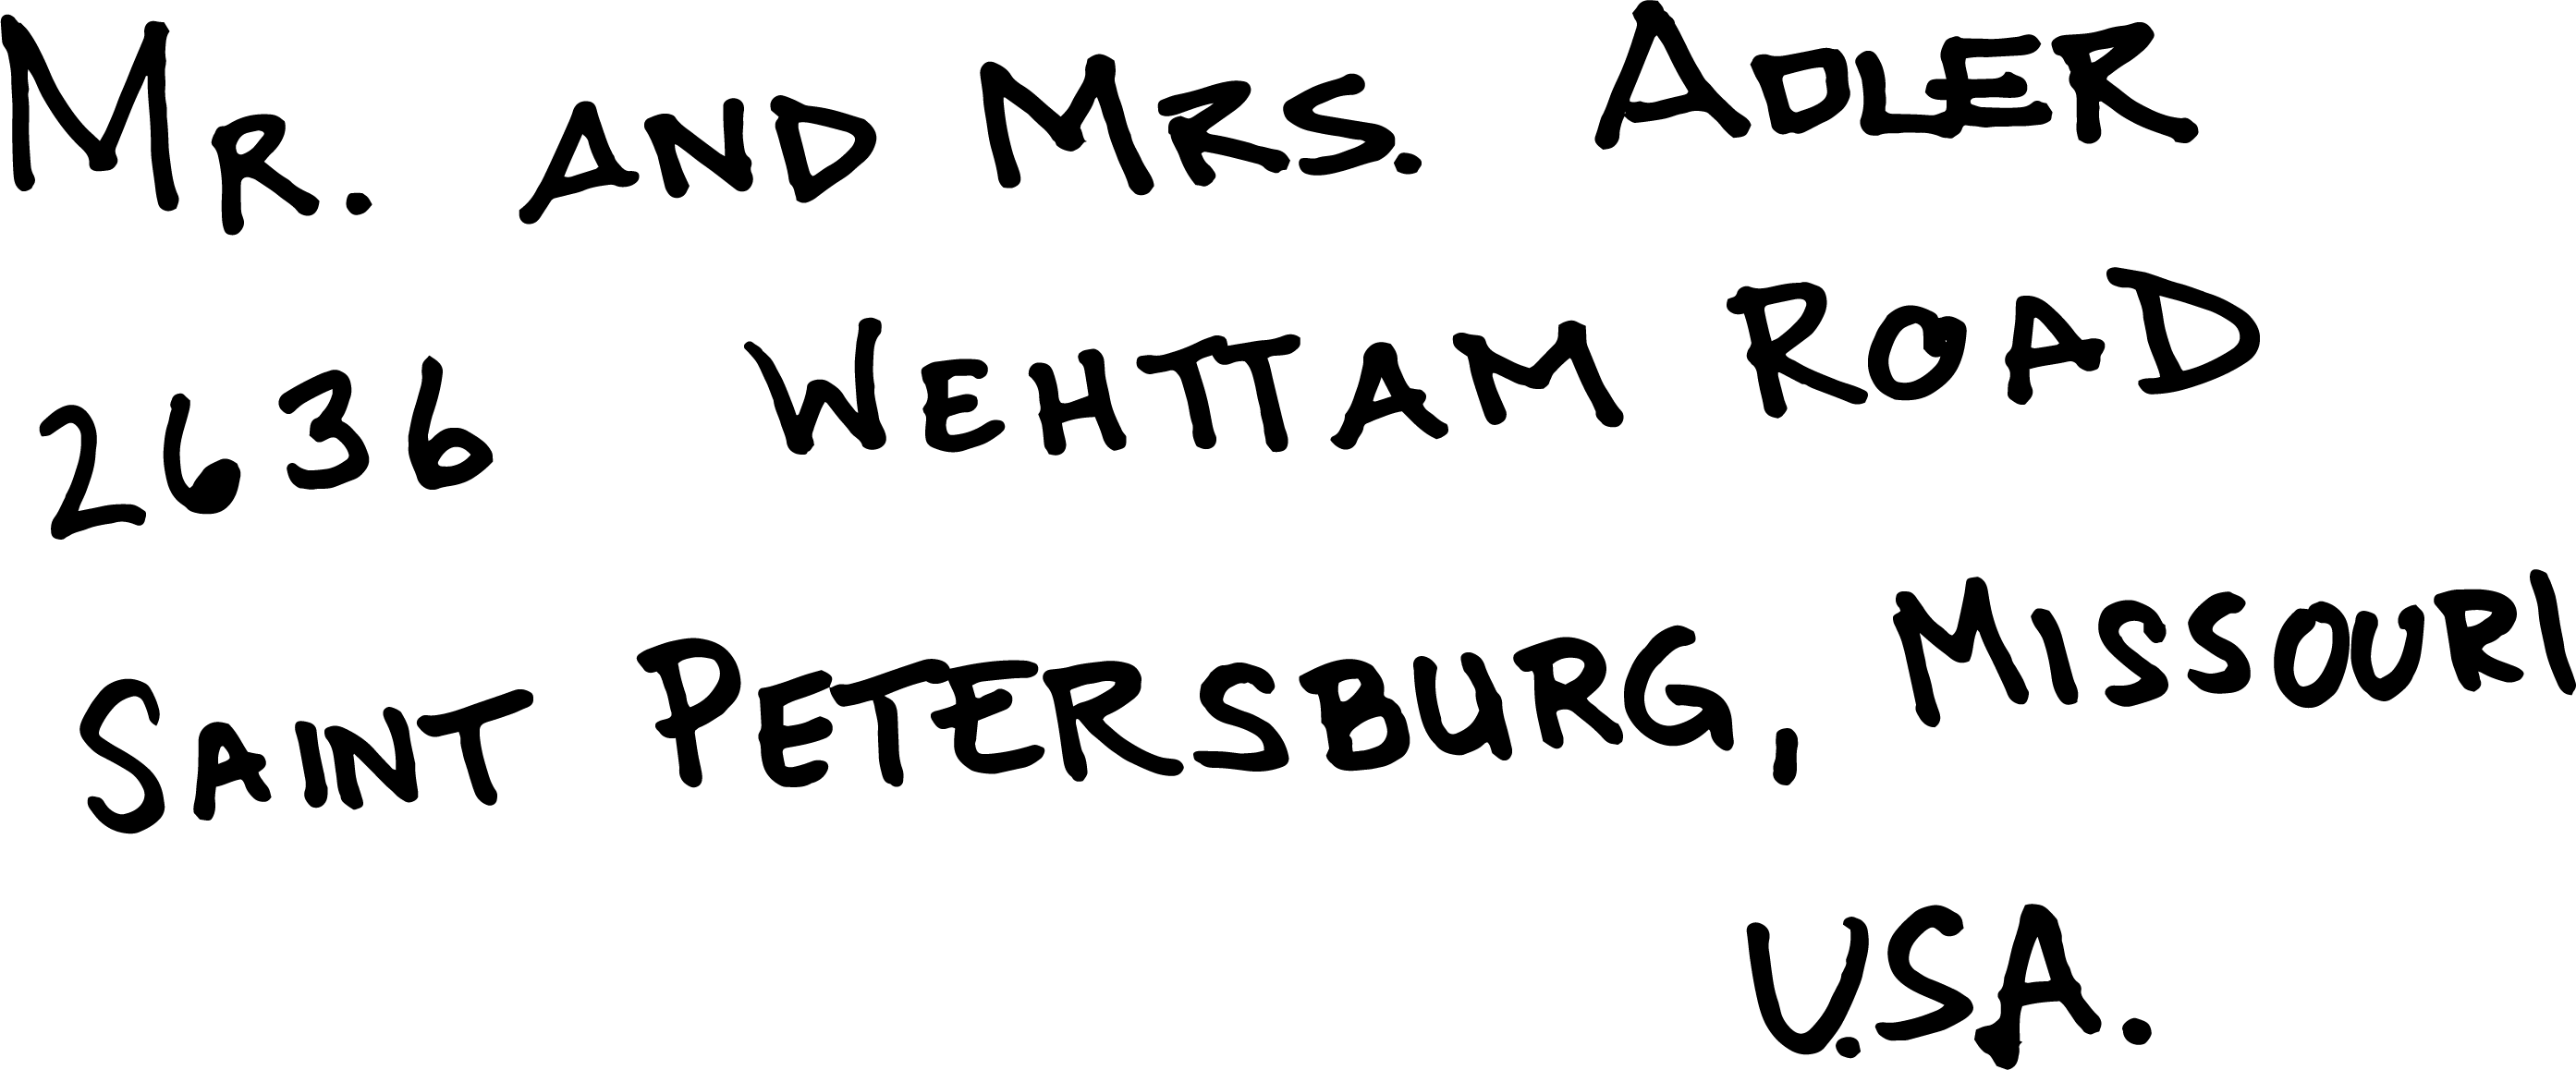 MR. AND MRS. ADLER
2636 WEHTTAM ROAD
SAINT PETERSBURG, MISSOURI
U.SA.